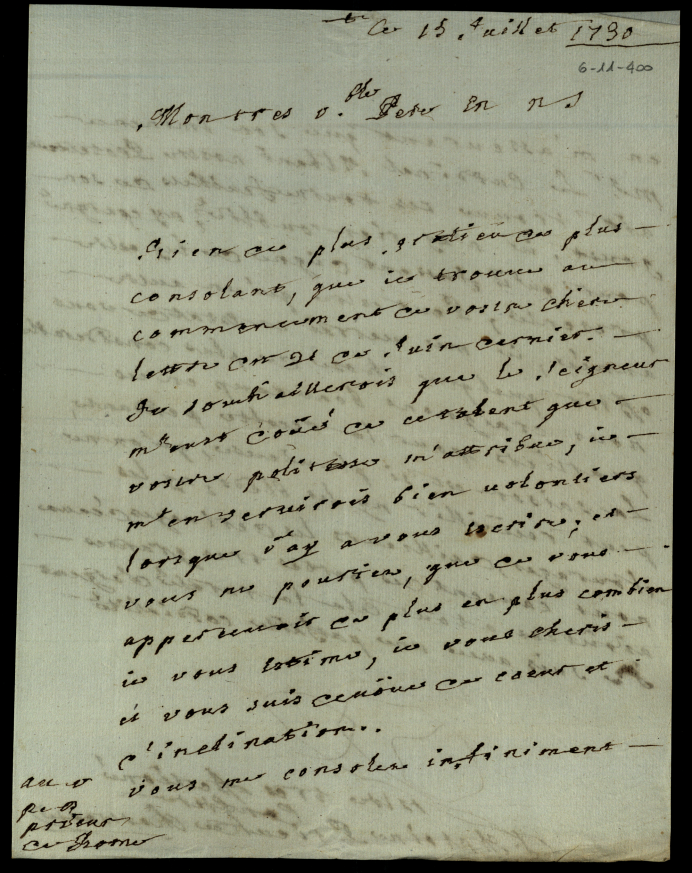 Ce 15 Juillet 1730
6-11-400
Mon tres v.ble Pere En n S
Rien de plus gratieu de plus
consolant, que ie trouve au
commencement de vostre chere
lettre du 21 de Juin dernier.
Je souhaitterois que le Seigneur
m'eust doüé de ce talent que
vostre politesse m'attribue, ie
m'en servirois bien volontiers
lorsque i'ay a vous escrire, et
vous ne pouriez, que de vous
appercevoir de plus en plus combien
ie vous estime, ie vous cheris
et vous suis devoüe de coeur et
d'inclination.
vous me consolez infiniment
au v
pe D
prieur
de Rome